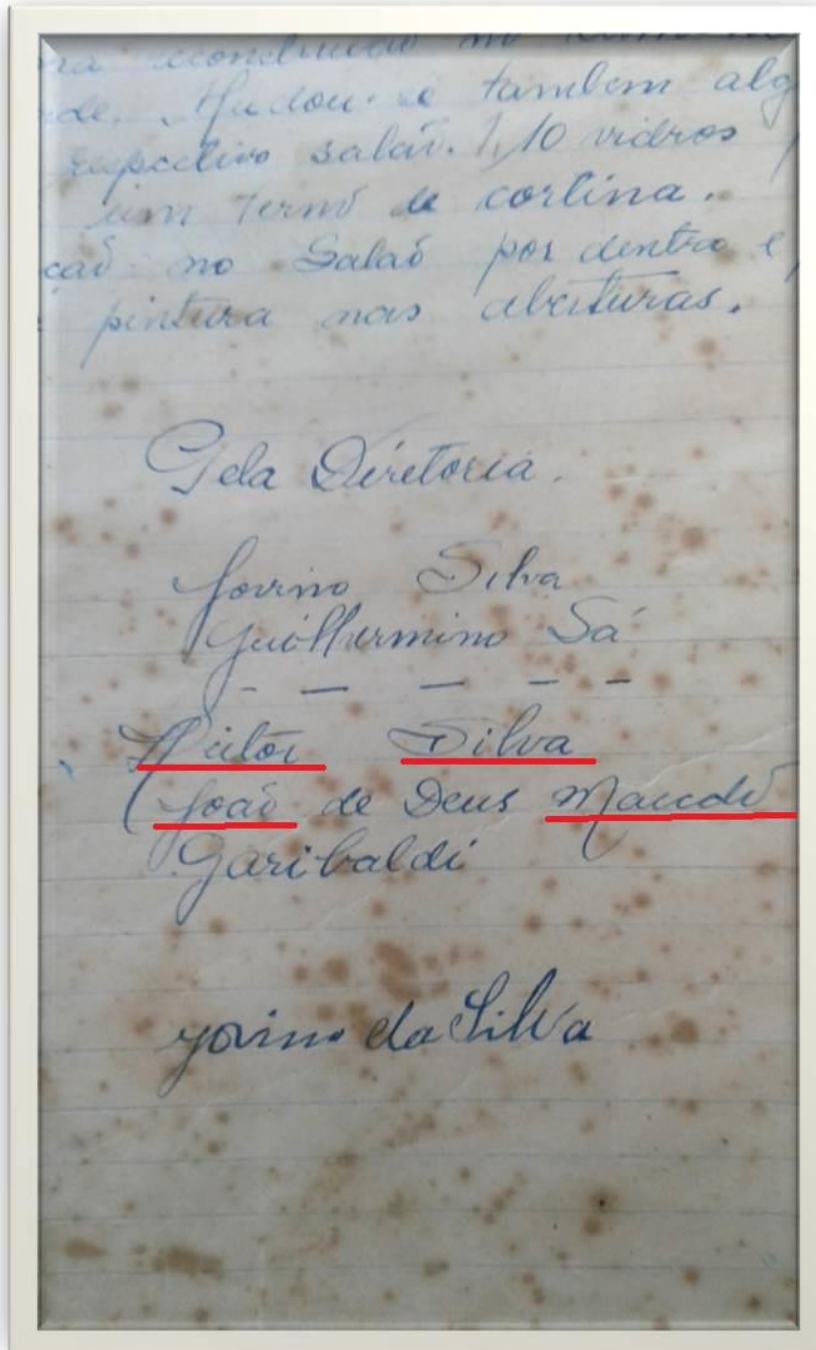 na no
nde. Mudou-se tambem alg
respectivo salaõ. 1,10 vidros
um Termô de cortina.
çaõ no Salaõ por dentro e
pintura nas aberturas.
Pela Diretoria.
Jovino Silva
Guilhermino Sá
- - - - -
Heitor Silva
(Joaõ de Deus Macedo
Garibaldi
Jovino da Silva